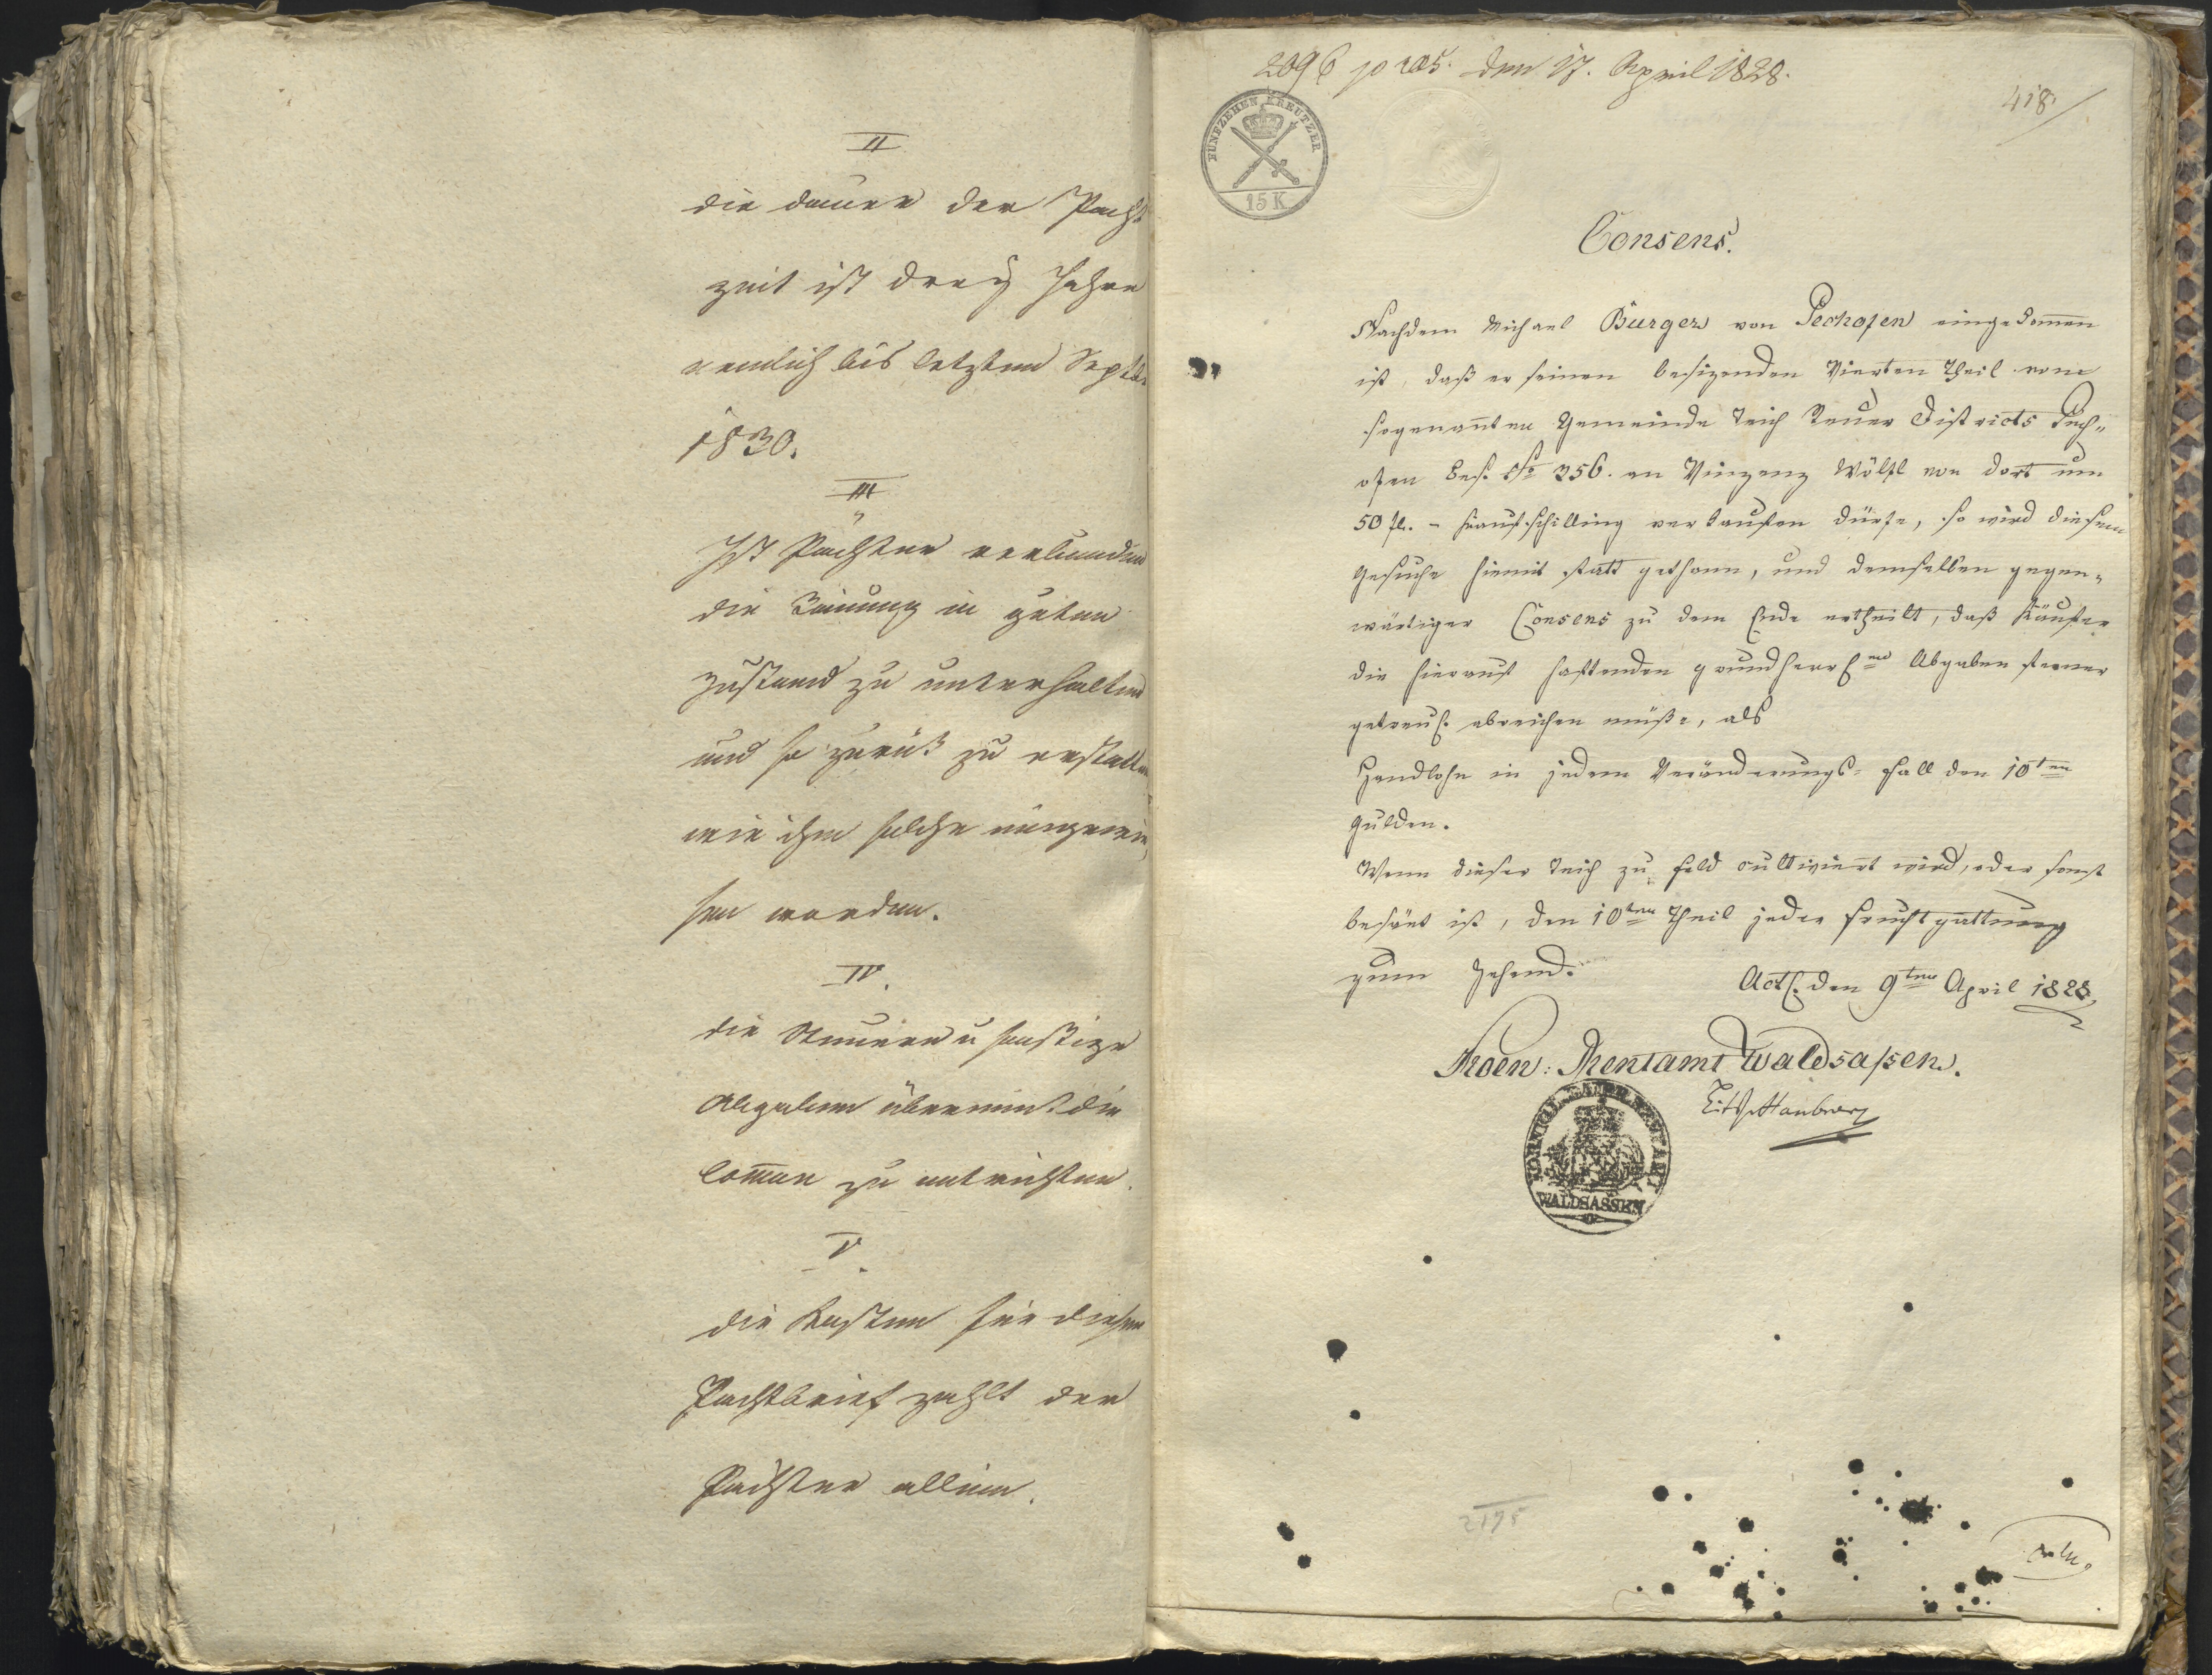 II
die dauer der Pacht
zeit ist drey Jahre
nemlich bis letzten Septbr
1830.
III
Ist Pächter verbunden
die Räumung in guten
Zustand zu unterhalten
und so zurük zu erstatten
wie ihm solche eingewie
sen worden.
IV.
die Steuern u sonstige
Abgaben übernimt die
Comun zu entrichten.
V.
die Kosten für diesen
Pachtbrief zahlt der
Pächter allein.
2096 praes. den 17. April 1828.
418.
FÜNFZEHEN KREUTZER
15 K
Consens.
Nachdem Michael Burger von Pechofen eingekomen
ist, daß er seinen besizenden Vierten Theil vom
sogenanten Gemeinde Teich Steuer Districts Pech„
ofen Bes. No 356. an Vinzenz Wölfl von dort um
50 fl. - Kaufschilling verkaufen dürfe, so wird diesem
Gesuche hiemit statt gethann, und demselben gegen„
wärtiger Consens zu dem Ende ertheilt, daß Käufer
die hierauf haftenden grundherrl. Abgaben ferner
getreul. abreichen müße, als
Handlohn in jedem Veränderungs-Fall den 10ten
Gulden.
Wenn dieser Teich zu Feld cultiviert wird, oder sonst
besäet ist, den 10ten Theil jeder Fruchtgattung
zum Zehend.
Act. den 9ten April 1828
Rentamt Waldsaßen.
KOENIGL. BAIER. RENTAMT
WALDSASSEN
2195